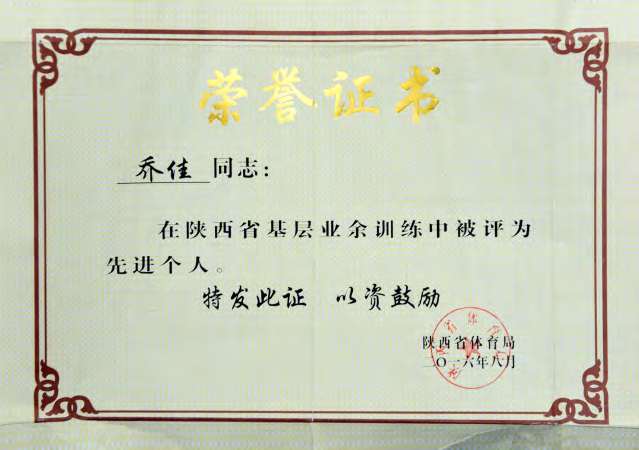 荣誉证书
乔佳 同志：
在陕西省基层业余训练中被评为
先进个人。
特发此证 以资鼓励
陕西省体育局
二〇一六年八月